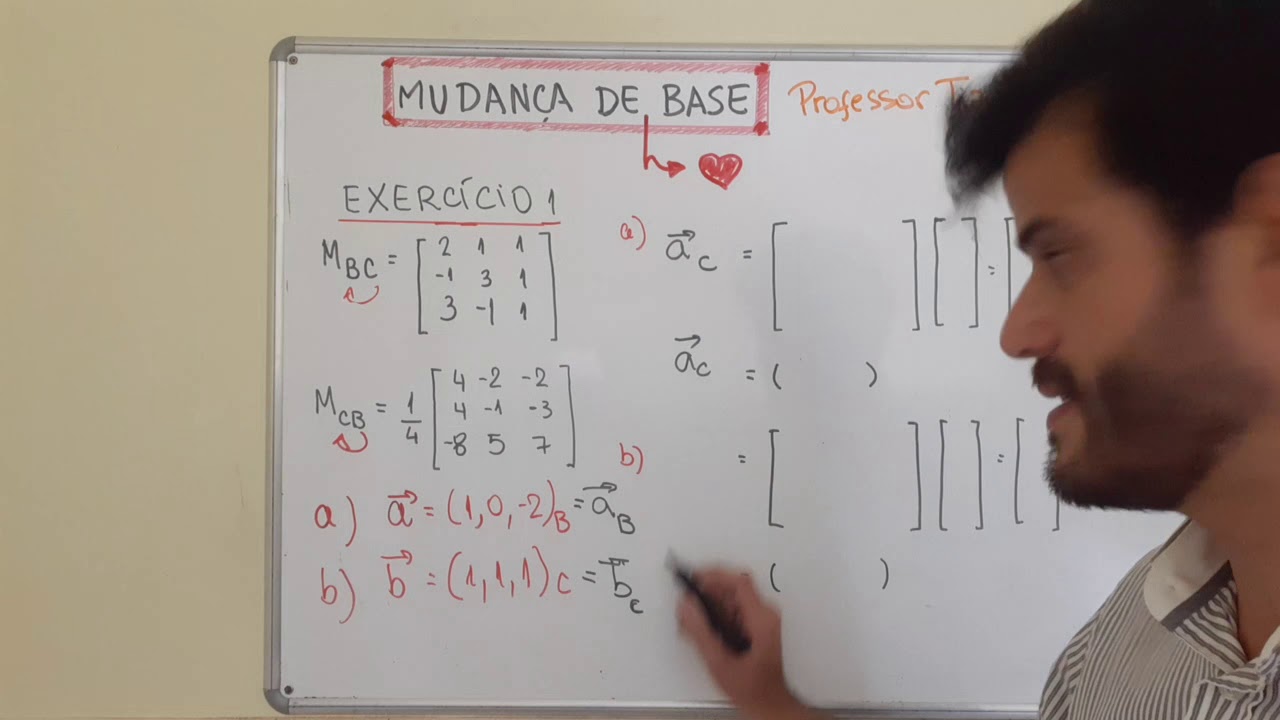 MUDANÇA DE BASE
Professor
EXERCÍCIO 1
M_BC = [ 2 1 1
-1 3 1
3 -1 1 ]
M_CB = 1/4 [ 4 -2 -2
4 -1 -3
-8 5 7 ]
a) a⃗ = (1,0,-2)_B = a⃗_B
b) b⃗ = (1,1,1)c = b⃗_c
a) a⃗_C = [ ] [ ] = [
a⃗_C = ( )
b) = [ ] [ ] = [ ]
= ( )